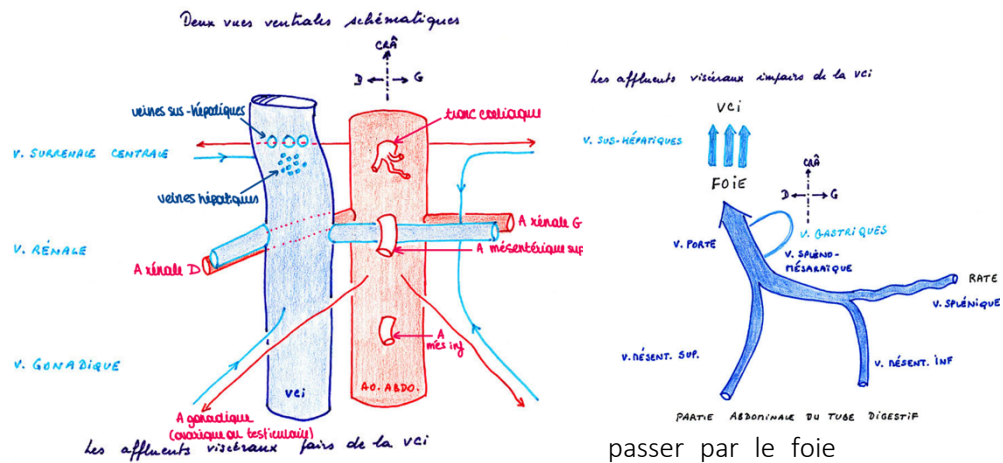 Deux vues ventrales schématiques
CRÂ
D G
veines sus-hépatiques
tronc coeliaque
V. SURRENALE CENTRALE
veines hépatiques
A rénale G
V. RÉNALE
A mésentérique sup
A rénale D
A
més inf
V. GONADIQUE
VCi
AO. ABDO.
A gonadique
(ovarique ou testiculaire)
Les affluents viscéraux pairs de la VCi
Les affluents viscéraux impairs de la VCi
VCi
V. SUS-HÉPATIQUES
CRÂ
FOIE
D G
V. GASTRIQUES
V. PORTE
V. SPLÉNO-
MÉSARAÏQUE
RATE
V. SPLÉNIQUE
V. MÉSENT. SUP.
V. MÉSENT. INF
PARTIE ABDOMINALE DU TUBE DIGESTIF
passer par le foie